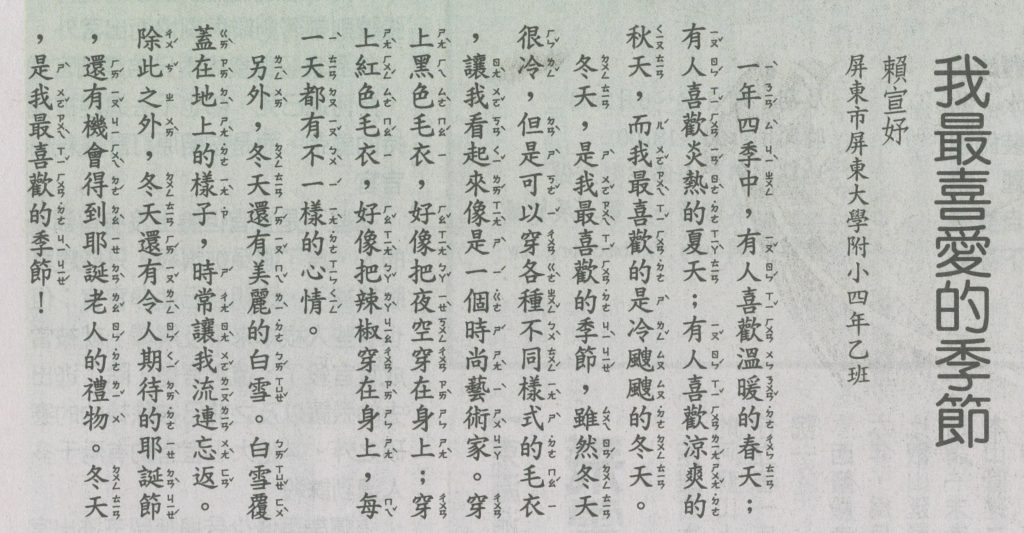 我最喜愛的季節
賴宣妤
屏東市屏東大學附小四年乙班
一年四季中，有人喜歡溫暖的春天；
有人喜歡炎熱的夏天；有人喜歡涼爽的
秋天，而我最喜歡的是冷颼颼的冬天。
冬天，是我最喜歡的季節，雖然冬天
很冷，但是可以穿各種不同樣式的毛衣
，讓我看起來像是一個時尚藝術家。穿
上黑色毛衣，好像把夜空穿在身上；穿
上紅色毛衣，好像把辣椒穿在身上，每
一天都有不一樣的心情。
另外，冬天還有美麗的白雪。白雪覆
蓋在地上的樣子，時常讓我流連忘返。
除此之外，冬天還有令人期待的耶誕節
，還有機會得到耶誕老人的禮物。冬天
，是我最喜歡的季節！